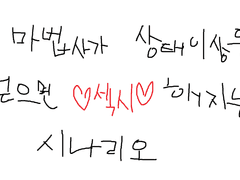 마법사가 상태이상을
걷으면 ♡섹시♡ 해지는
시나리오